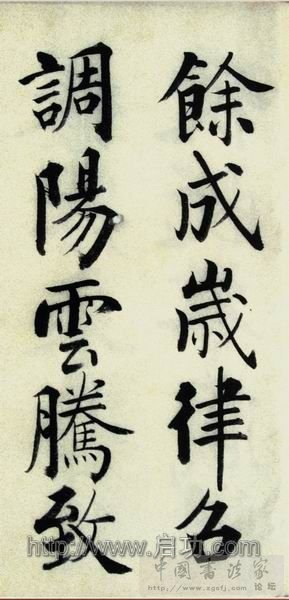 餘成歲律召
調陽雲騰致
http://www.启功.com
中國書法家
www.zgsfj.com 论坛